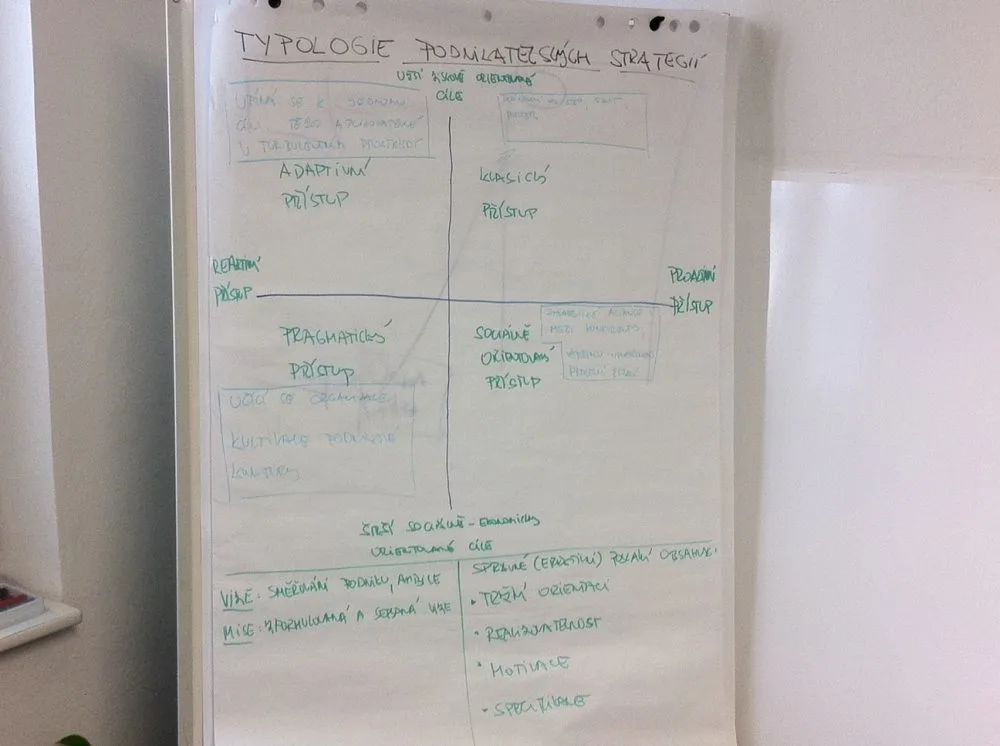 TYPOLOGIE PODNIKATELSKÝCH STRATEGIÍ
UŽŠÍ ZISKOVĚ ORIENTOVANÉ
CÍLE
UPÍNÁ SE K JEDNOMU
CÍLI TĚŽCE
V TURBULENTNÍM PROSTŘEDÍ
ADAPTIVNÍ
PŘÍSTUP
KLASICKÝ
PŘÍSTUP
REAKTIVNÍ
PŘÍSTUP
PROAKTIVNÍ
PŘÍSTUP
PRAGMATICKÝ
PŘÍSTUP
SOCIÁLNĚ
ORIENTOVANÝ
PŘÍSTUP
STRATEGICKÉ ALIANCE
MEZI
UČÍCÍ SE ORGANIZACE
KULTIVACE PODNIKOVÉ
KULTURY
ŠIRŠÍ SOCIÁLNĚ - EKONOMICKY
ORIENTOVANÉ CÍLE
VIZE: SMĚŘOVÁNÍ PODNIKU, AMBICE
MISE: ZFORMULOVANÁ A SEPSANÁ VIZE
SPRÁVNÉ (EFEKTIVNÍ) POSLÁNÍ OBSAHUJE:
• TRŽNÍ ORIENTACI
• REALIZOVATELNOST
• MOTIVACE
• SPECIFIKACE